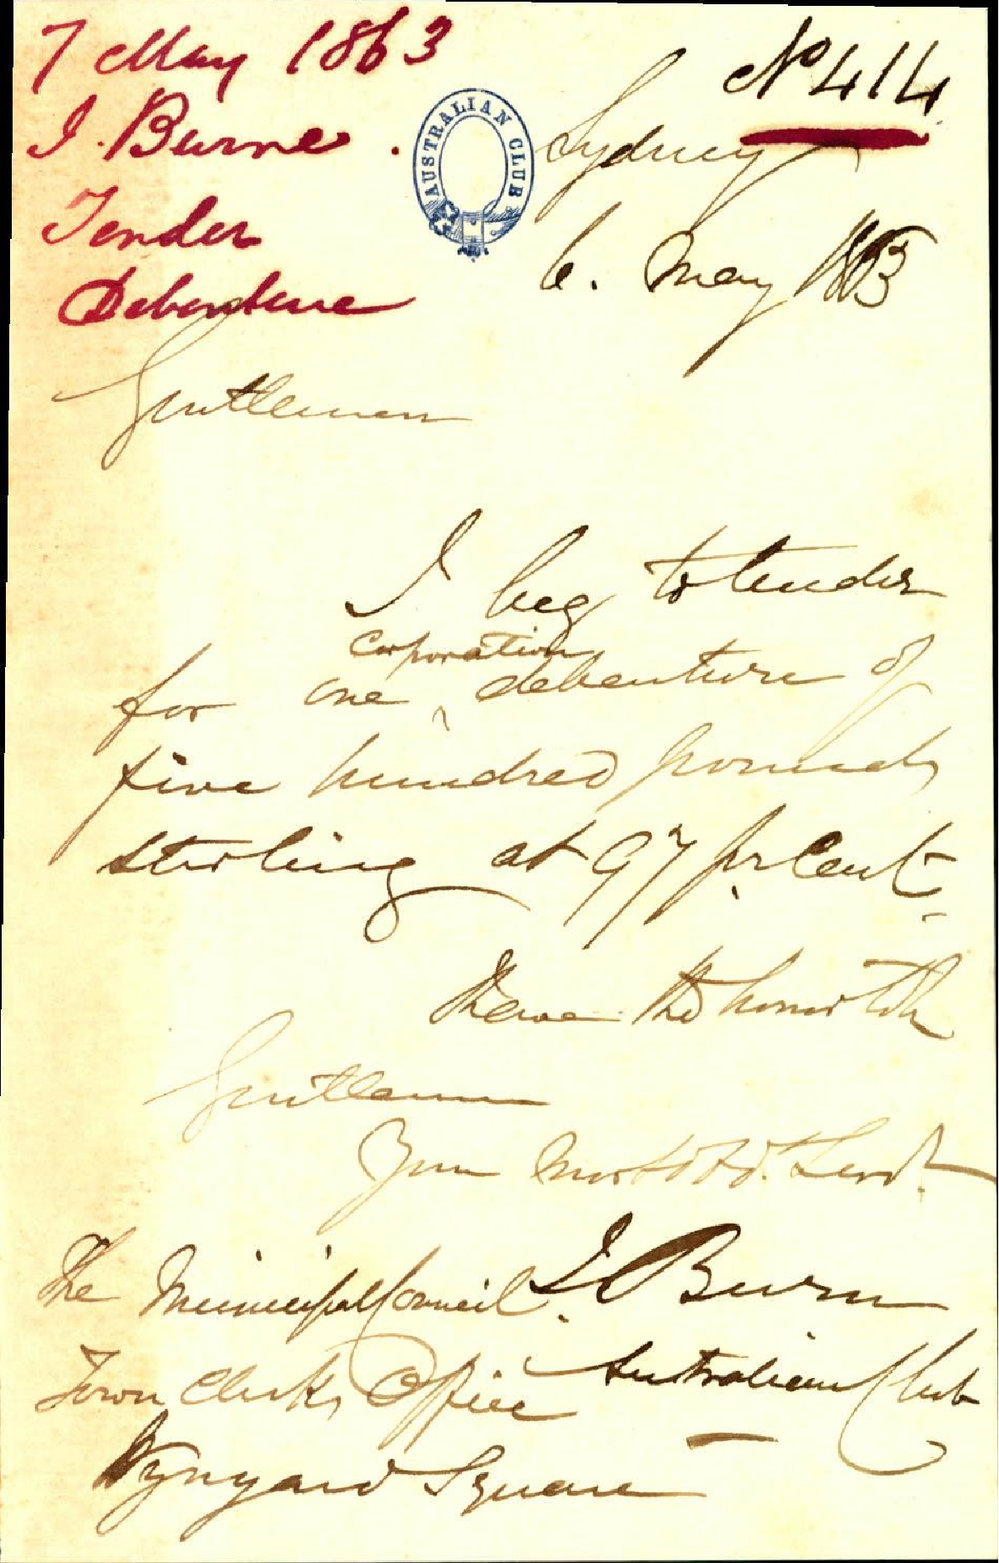 7 May 1863
J. Burne.
Tender
Debenture
No 414
AUSTRALIAN CLUB
Sydney
6. May 1863
Gentlemen
I beg to tender
for one corporation debenture of
five hundred pounds
sterling at 97 pr Cent.
I have the honor to be
Gentlemen
Your most Obt. Servt.
The Municipal Council.
Burne
Town Clerks Office
Australian Club
Wynyard Square